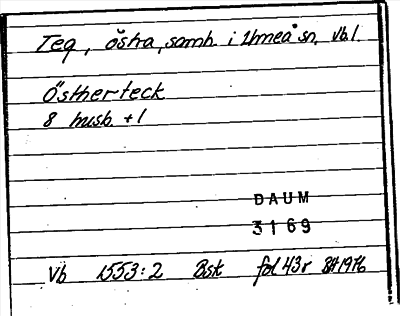 Teg, östra, samh. i Umeå sn, Vb.l.
Östherteck
8 husb. +1
DAUM
3169
Vb 1553:2 Bsk fol 43r BH1976